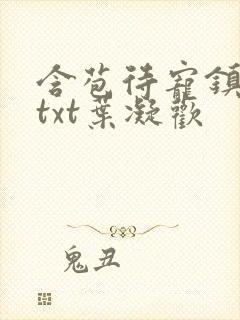 含苞待寵鎮
txt葉凝歡
鬼丑